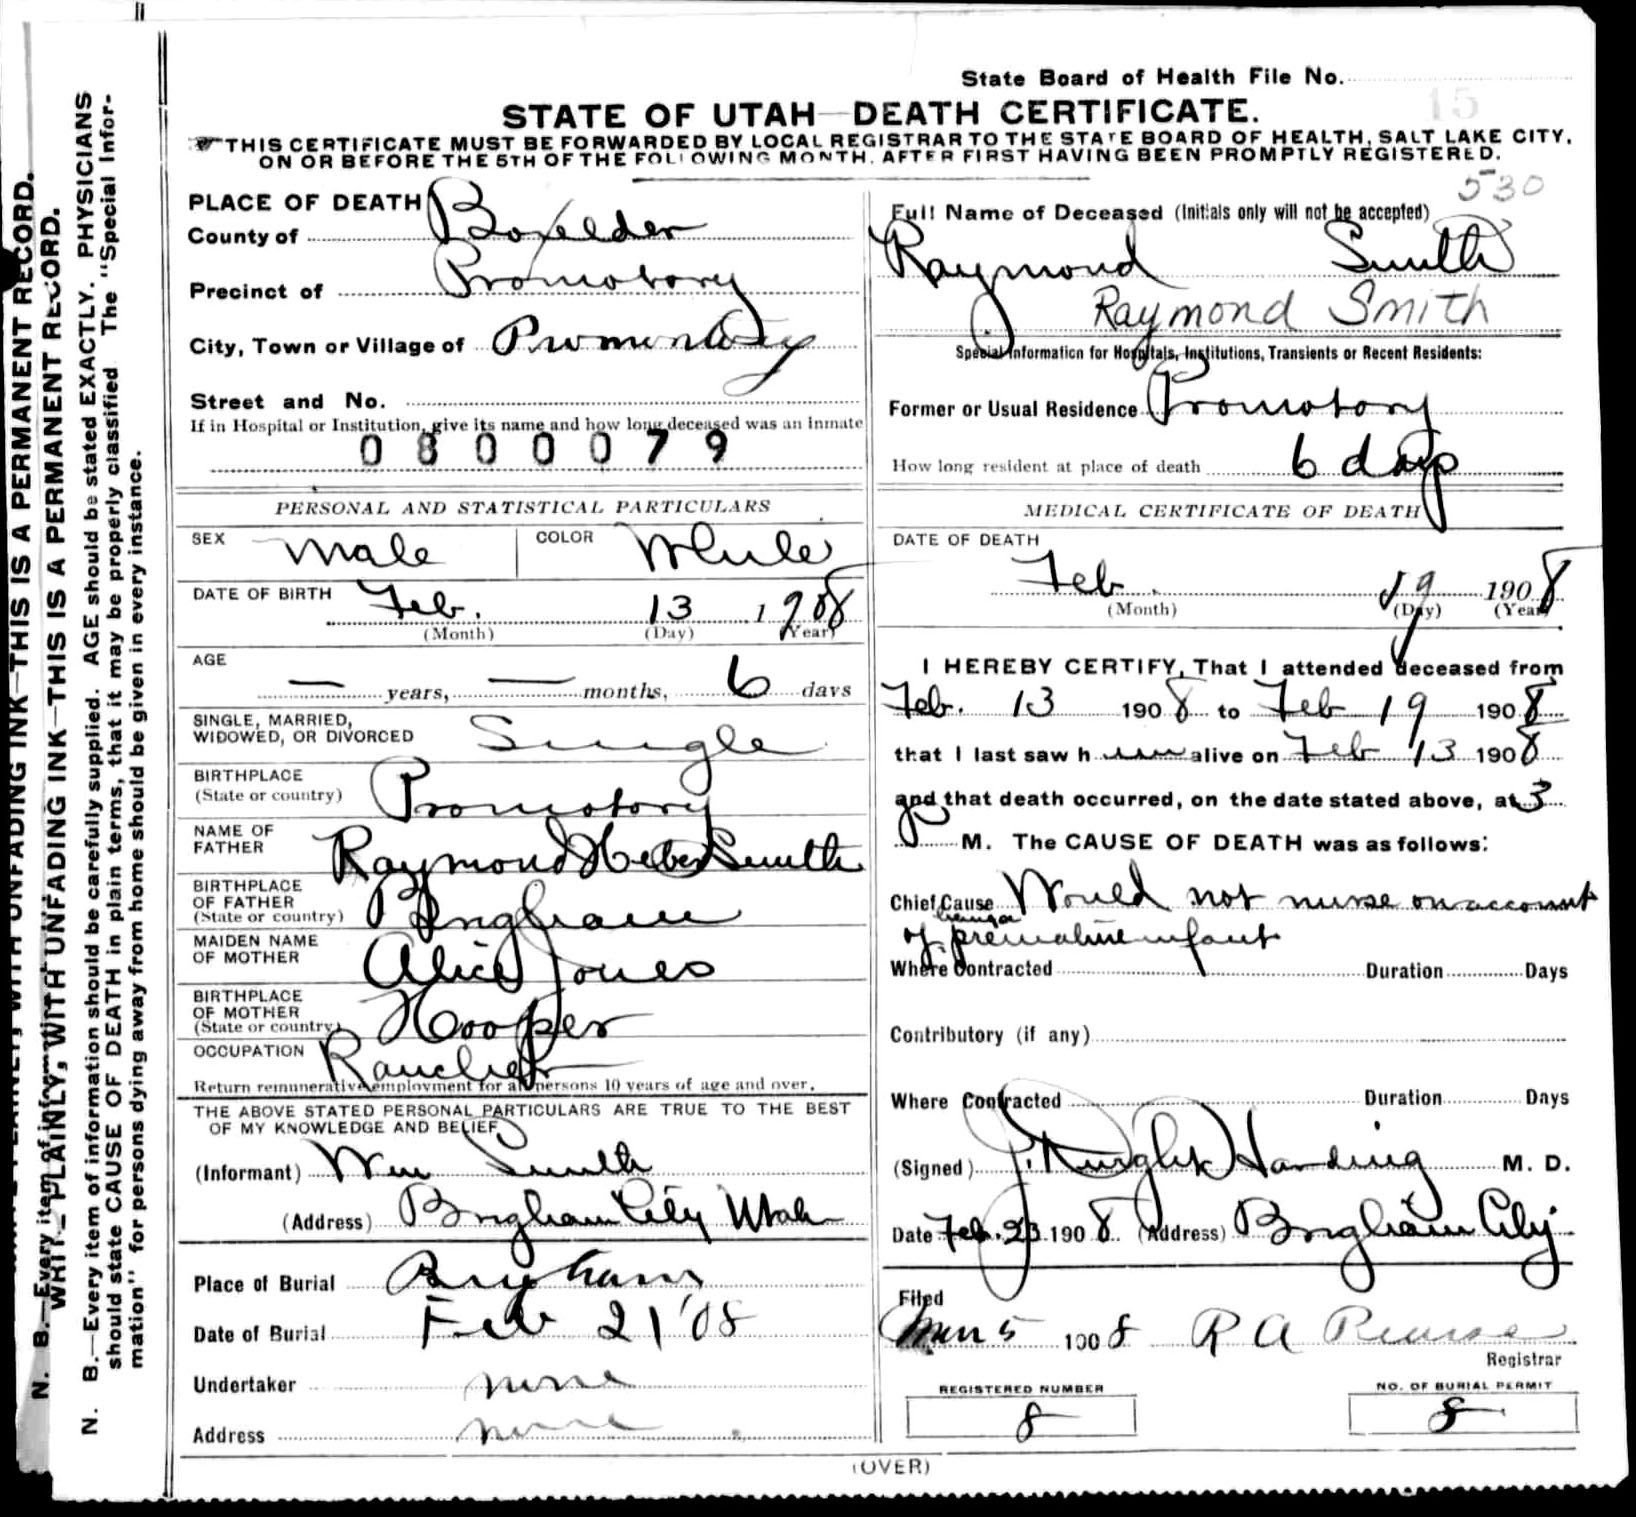 State Board of Health File No.
15
STATE OF UTAH—DEATH CERTIFICATE.
THIS CERTIFICATE MUST BE FORWARDED BY LOCAL REGISTRAR TO THE STATE BOARD OF HEALTH, SALT LAKE CITY,
ON OR BEFORE THE 5TH OF THE FOLLOWING MONTH, AFTER FIRST HAVING BEEN PROMPTLY REGISTERED.
530
PLACE OF DEATH
County of Boxelder
Precinct of Promotory
City, Town or Village of Promontory
Street and No.
If in Hospital or Institution, give its name and how long deceased was an inmate
0800079
PERSONAL AND STATISTICAL PARTICULARS
SEX Male COLOR White
DATE OF BIRTH Feb. 13 1908
(Month) (Day) (Year)
AGE — years, — months, 6 days
SINGLE, MARRIED,
WIDOWED, OR DIVORCED Single
BIRTHPLACE
(State or country) Promotory
NAME OF
FATHER Raymond Heber Smith
BIRTHPLACE
OF FATHER
(State or country) Brigham
MAIDEN NAME
OF MOTHER Alice Jones
BIRTHPLACE
OF MOTHER
(State or country) Hooper
OCCUPATION Rancher
Return remunerative employment for all persons 10 years of age and over.
THE ABOVE STATED PERSONAL PARTICULARS ARE TRUE TO THE BEST
OF MY KNOWLEDGE AND BELIEF
(Informant) Wm Smith
(Address) Brigham City Utah
Place of Burial Brigham
Date of Burial Feb 21 '08
Undertaker none
Address none
Full Name of Deceased (Initials only will not be accepted)
Raymond Smith
Raymond Smith
Special Information for Hospitals, Institutions, Transients or Recent Residents:
Former or Usual Residence Promotory
How long resident at place of death 6 days
MEDICAL CERTIFICATE OF DEATH
DATE OF DEATH
Feb. 19 1908
(Month) (Day) (Year)
I HEREBY CERTIFY, That I attended deceased from
Feb. 13 1908 to Feb 19 1908
that I last saw him alive on Feb 13 1908
and that death occurred, on the date stated above, at 3
M. The CAUSE OF DEATH was as follows:
Chief Cause Would not nurse on account
of being a premature infant
Where Contracted Duration Days
Contributory (if any)
Where Contracted Duration Days
(Signed) J. Harding M. D.
Date Feb. 23 1908 (Address) Brigham City
Filed
5 1908 R A Pearse
Registrar
REGISTERED NUMBER
8
NO. OF BURIAL PERMIT
8
(OVER)
WRITE PLAINLY, WITH UNFADING INK—THIS IS A PERMANENT RECORD.
N. B.—Every item of information should be carefully supplied. AGE should be stated EXACTLY. PHYSICIANS
should state CAUSE OF DEATH in plain terms, that it may be properly classified The "Special Infor-
mation" for persons dying away from home should be given in every instance.
WITH UNFADING INK—THIS IS A PERMANENT RECORD.
N. B.—Every item of